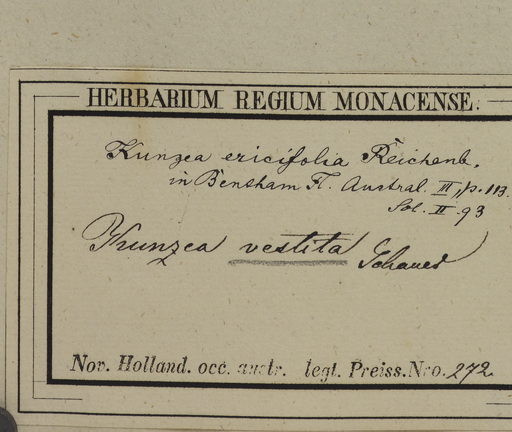 HERBARIUM REGIUM MONACENSE.
Kunzea ericifolia Reichenb.
in Bentham Fl. Austral. III, p. 113.
Sol. II. 93
Kunzea vestita Schauer
Nov. Holland. occ. austr. legt. Preiss. Nro. 272.